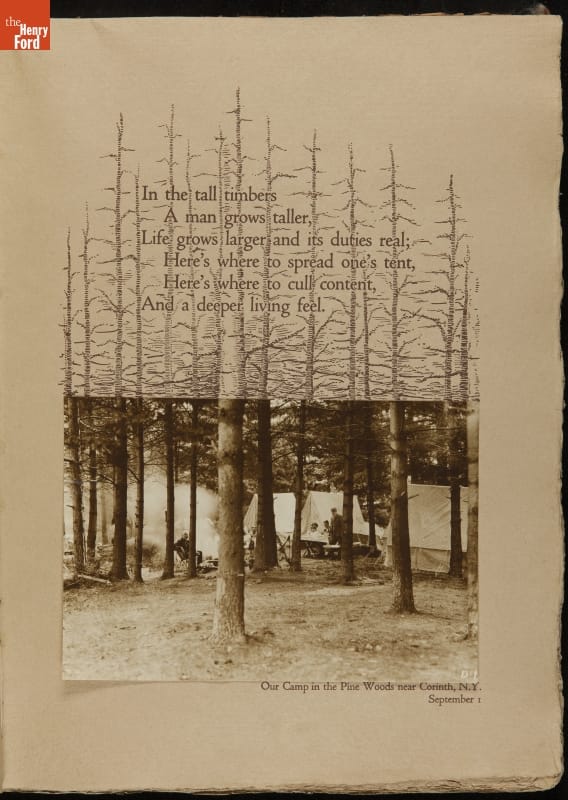 the
Henry
Ford
In the tall timbers
A man grows taller,
Life grows larger and its duties real;
Here's where to spread one's tent,
Here's where to cull content,
And a deeper living feel.
Our Camp in the Pine Woods near Corinth, N.Y.
September 1